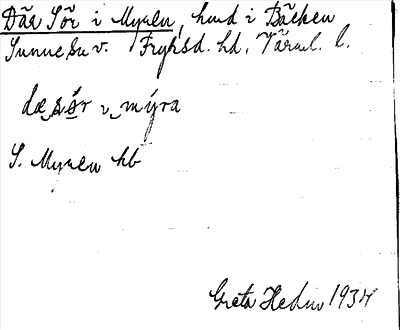 Där Sör i Myren, hmd i Bäcken
Sunne sn v. Fryksd. hd, Värml. l.
dæ sör i mýra
S. Myren hb
Greta Hedin 1934